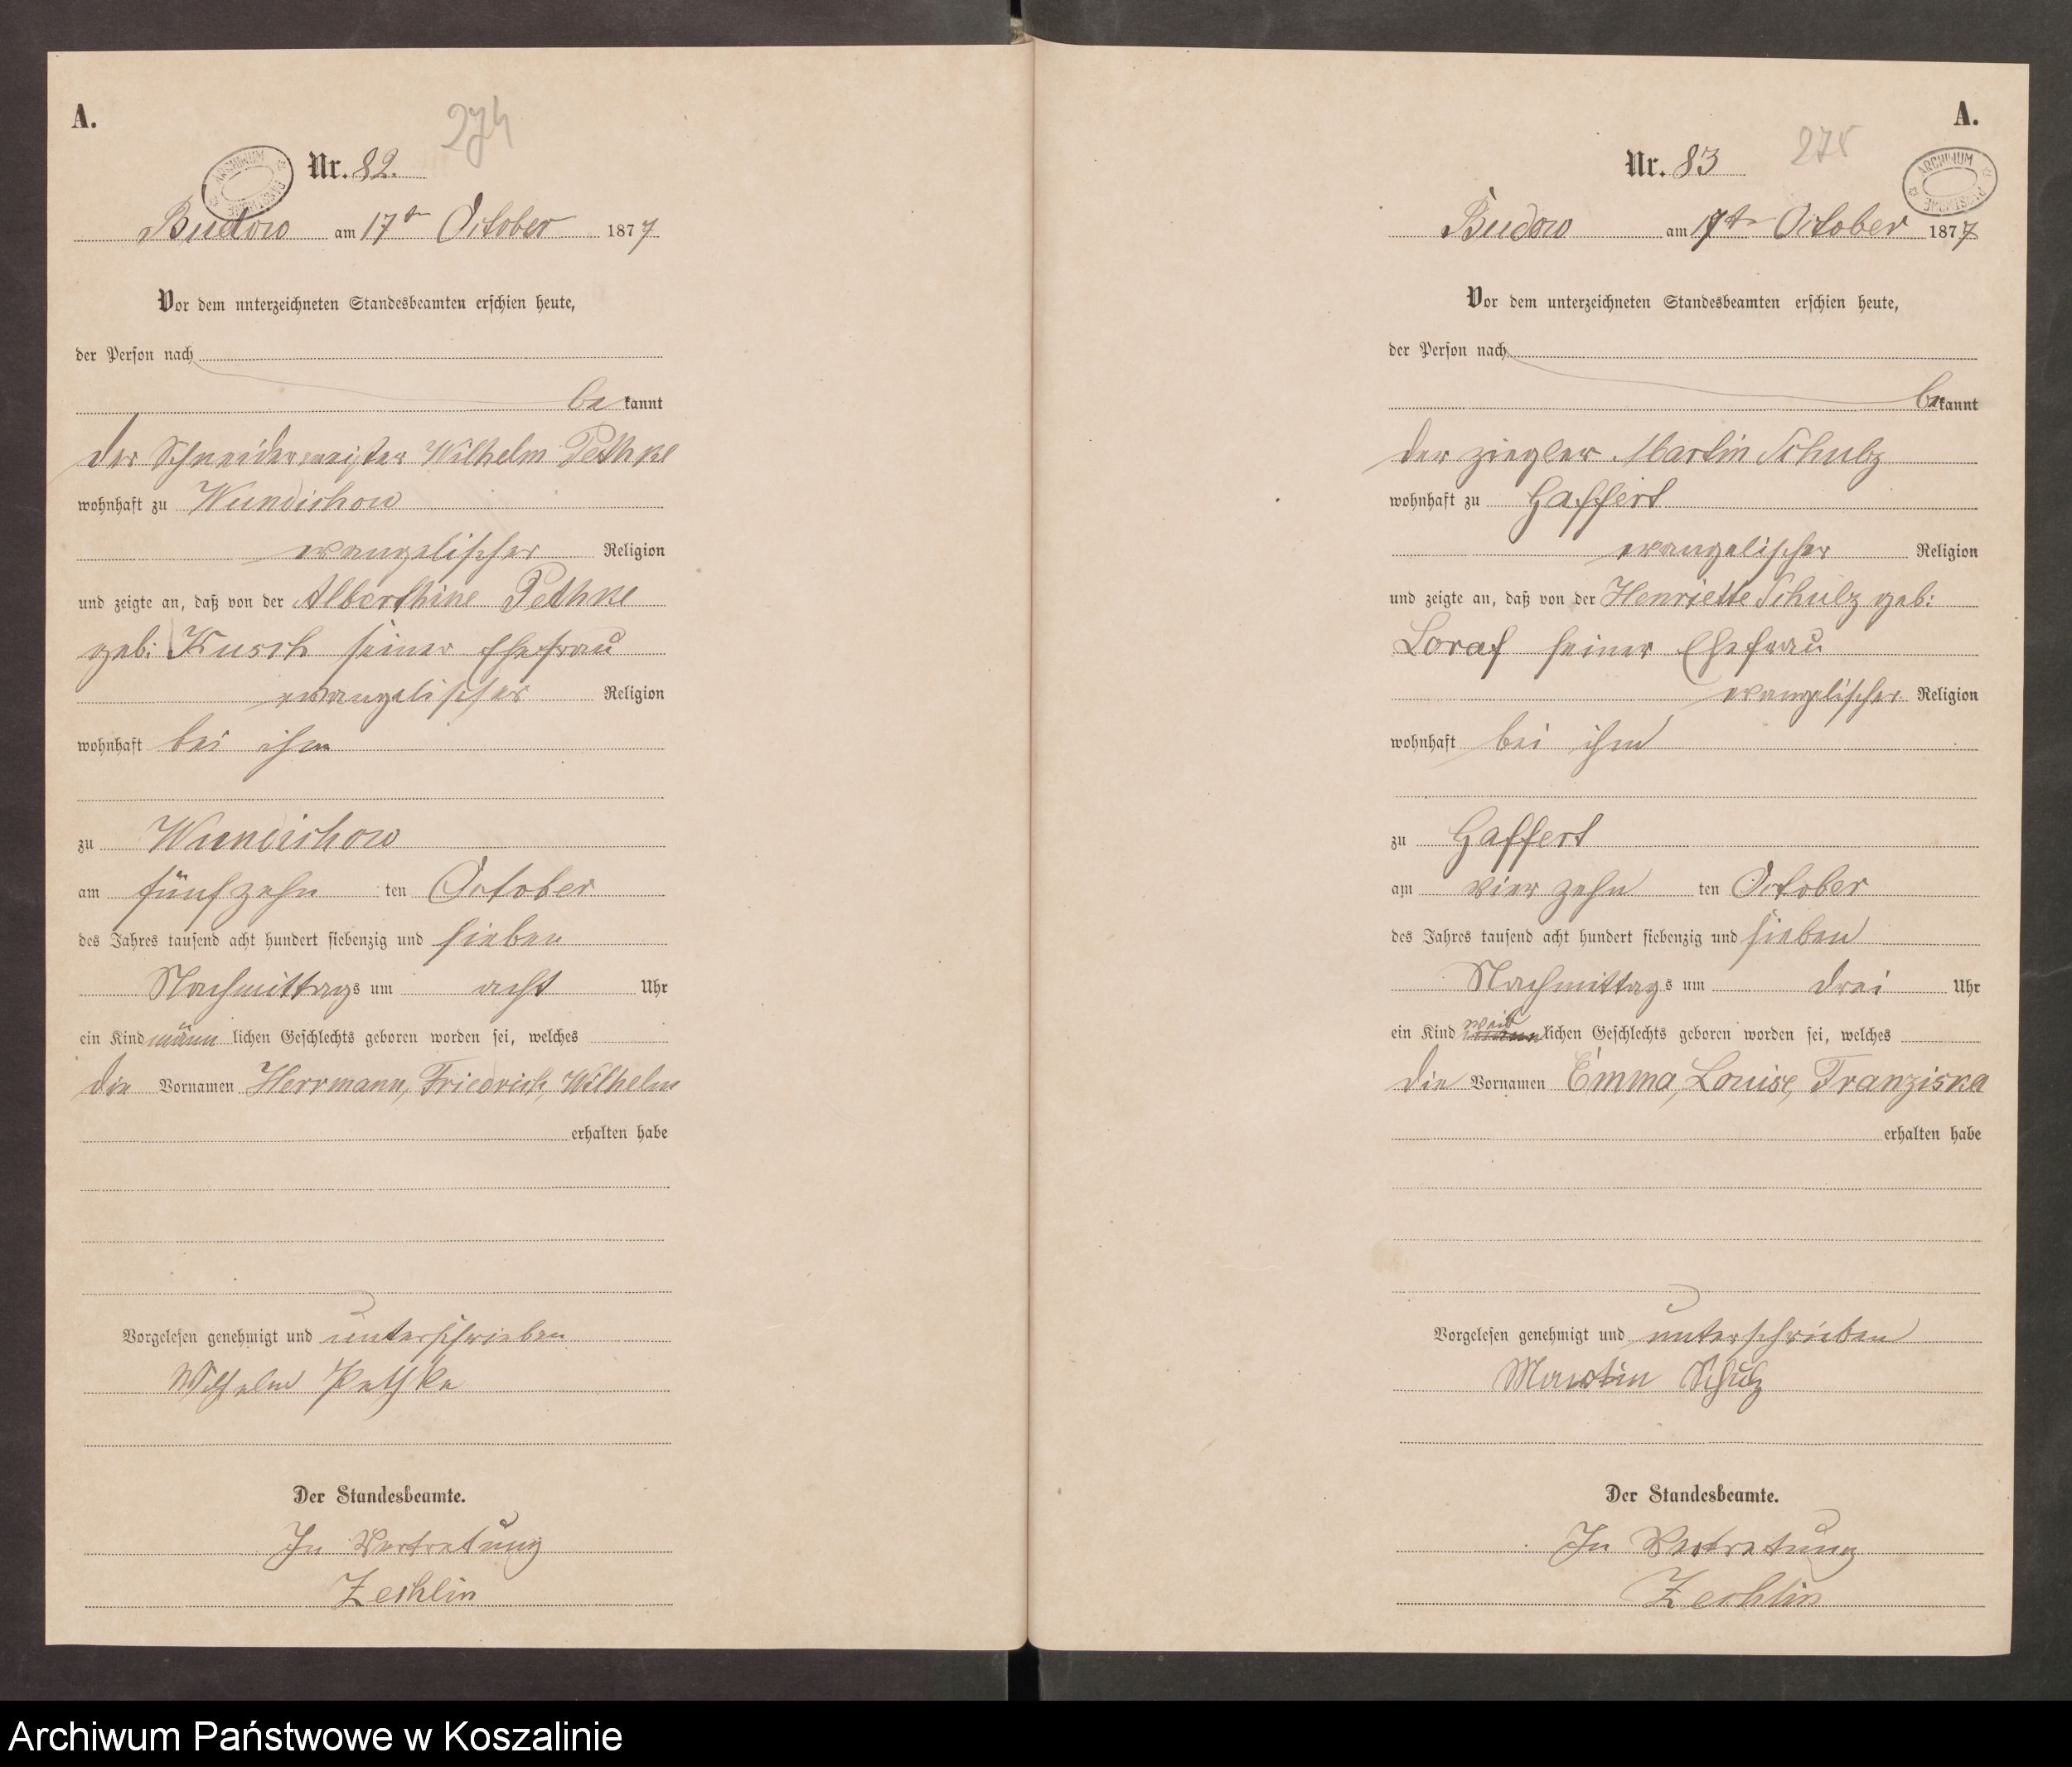 A.
274
Nr. 82.
ARCHIWUM PAŃSTWOWE
Budow am 17ten October 1877
Vor dem unterzeichneten Standesbeamten erschien heute,
der Person nach
be kannt
der Schneidermeister Wilhelm Pethke
wohnhaft zu Wundichow
evangelischer Religion
und zeigte an, daß von der Alberthine Pethke
geb: Kusch seiner Ehefrau
evangelischer Religion
wohnhaft bei ihm
zu Wundichow
am fünfzehn ten October
des Jahres tausend acht hundert siebenzig und sieben
Nachmittags um acht Uhr
ein Kind männ lichen Geschlechts geboren worden sei, welches
die Vornamen Herrmann, Friedrich, Wilhelm
erhalten habe
Vorgelesen genehmigt und unterschrieben
Wilhelm Pethke
Der Standesbeamte.
In Vertretung
Zechlin
A.
275
Nr. 83
ARCHIWUM PAŃSTWOWE
Budow am 17ten October 1877
Vor dem unterzeichneten Standesbeamten erschien heute,
der Person nach
be kannt
der Ziegler Martin Schulz
wohnhaft zu Gaffert
evangelischer Religion
und zeigte an, daß von der Henriette Schulz geb:
Loraf seiner Ehefrau
evangelischer Religion
wohnhaft bei ihm
zu Gaffert
am vier zehn ten October
des Jahres tausend acht hundert siebenzig und sieben
Nachmittags um drei Uhr
ein Kind weib lichen Geschlechts geboren worden sei, welches
die Vornamen Emma, Louise, Franziska
erhalten habe
Vorgelesen genehmigt und unterschrieben
Martin Schulz
Der Standesbeamte.
In Vertretung
Zechlin
Archiwum Państwowe w Koszalinie